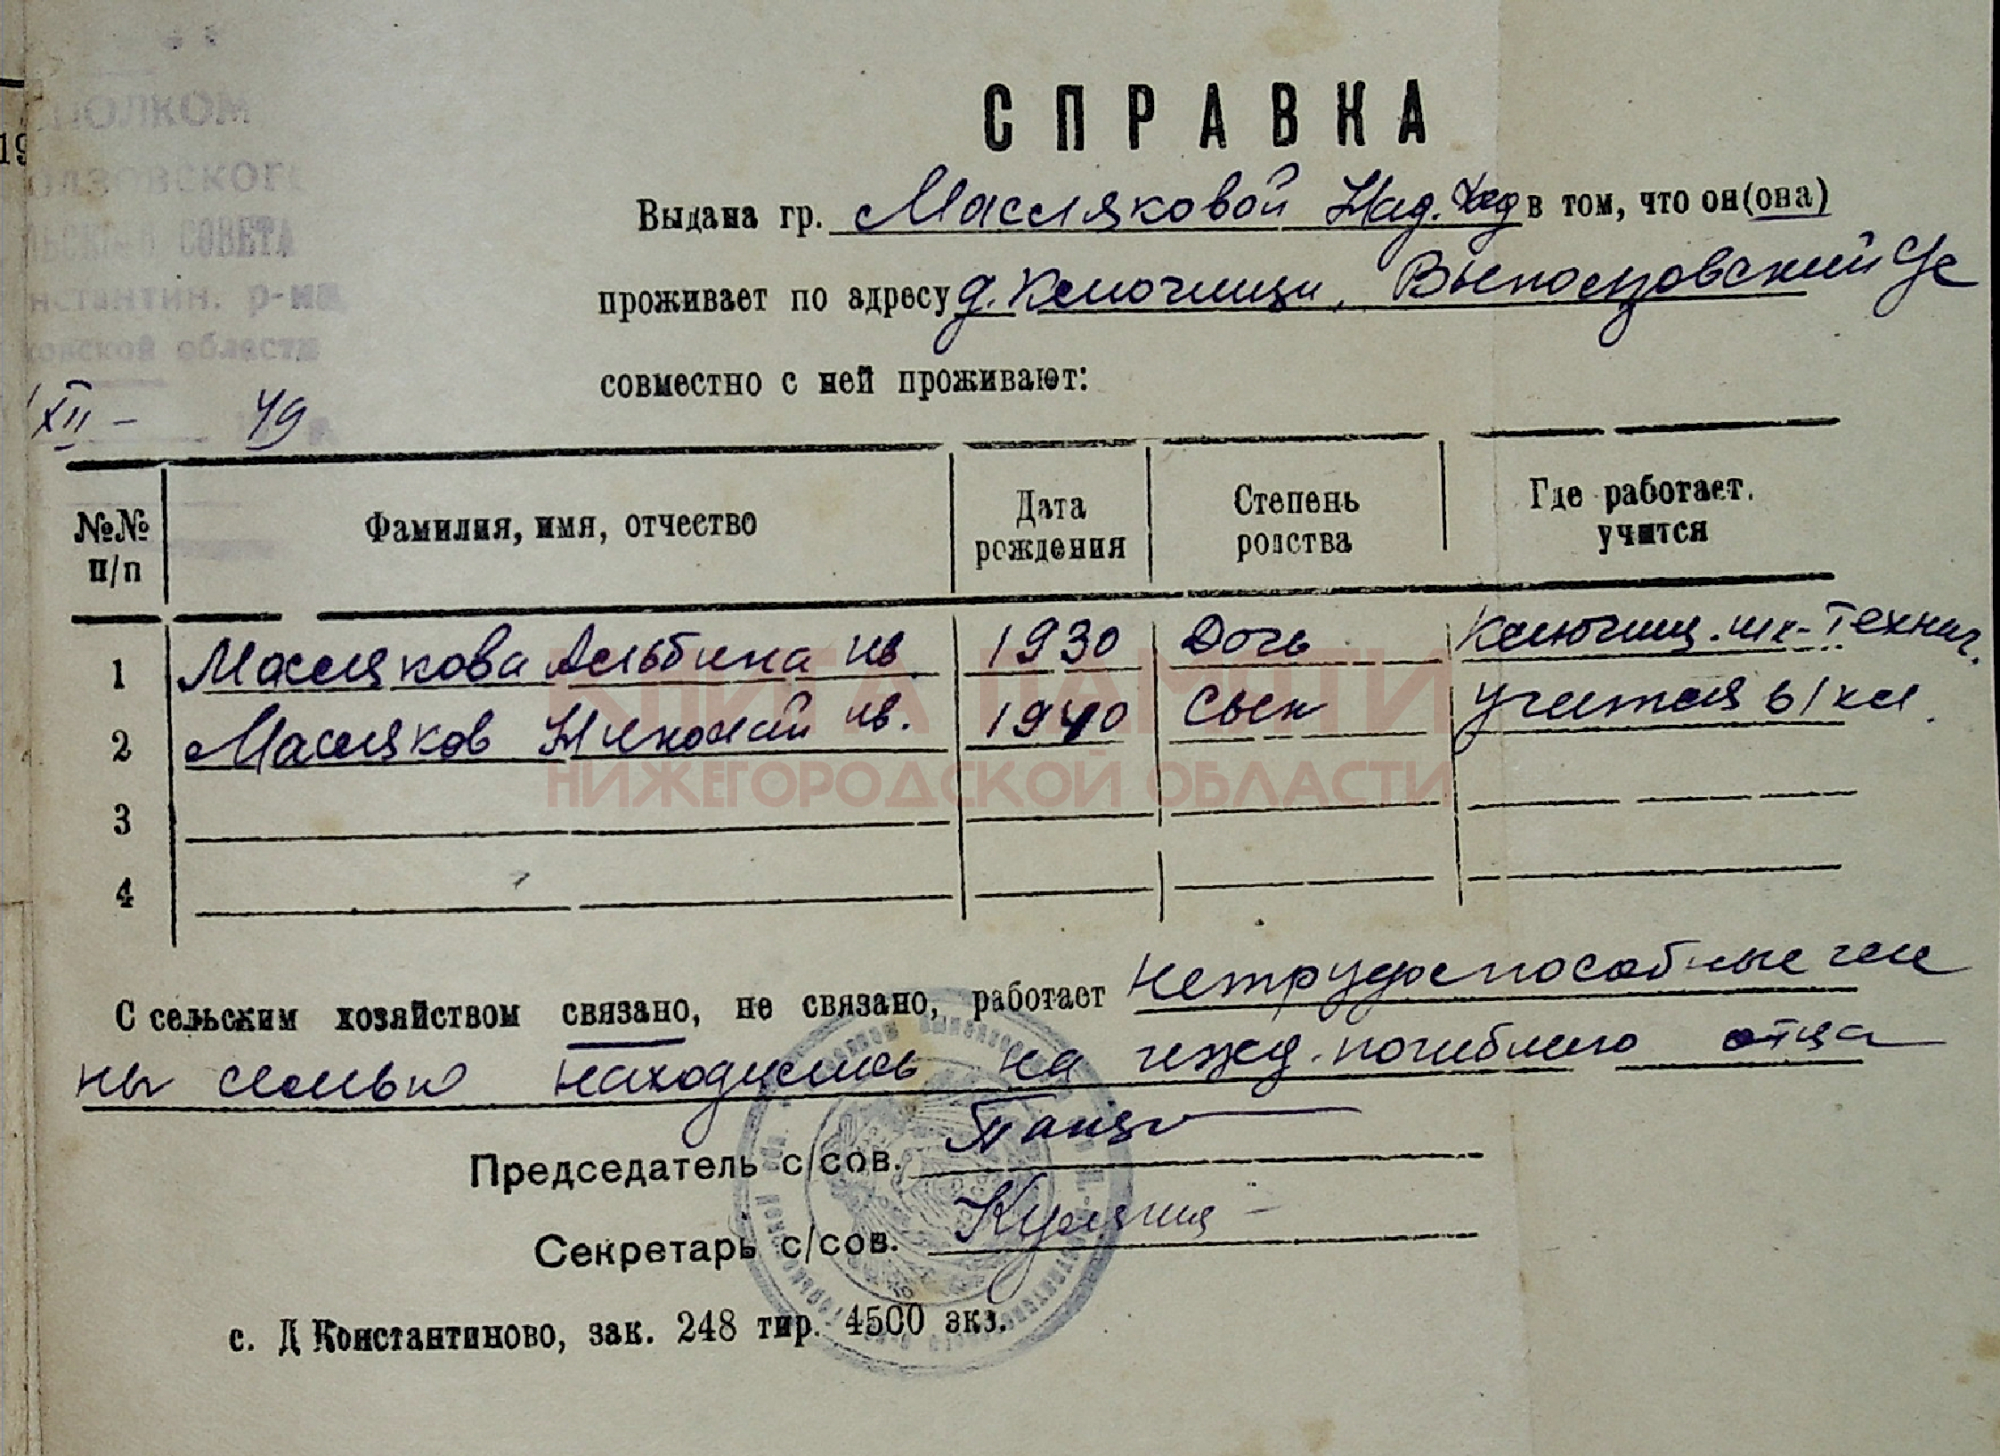 СПРАВКА
Выдана гр. Масляковой Над. Фед в том, что он(она)
проживает по адресу д. Ключищи, Выползовский с/с
совместно с ней проживают:
ПОЛКОМ
ОЛЗОВСКОГО
ЛЬСКОГО СОВЕТА
нстантин. р-на,
ковской области
XII - 49
№№ п/п
Фамилия, имя, отчество
Дата рождения
Степень родства
Где работает. учится
1 Маслякова Альбина ив 1930 Дочь Ключищ. шк-Технич.
2 Масляков Николай ив. 1940 Сын Учится в 1 кл.
3
4
С сельским хозяйством связано, не связано, работает нетрудоспособные чле
ны семьи находились на ижд. погибшего отца
Председатель с/сов.
Секретарь с/сов.
с. Д Константиново, зак. 248 тир. 4500 экз.
КНИГА ПАМЯТИ
НИЖЕГОРОДСКОЙ ОБЛАСТИ
19